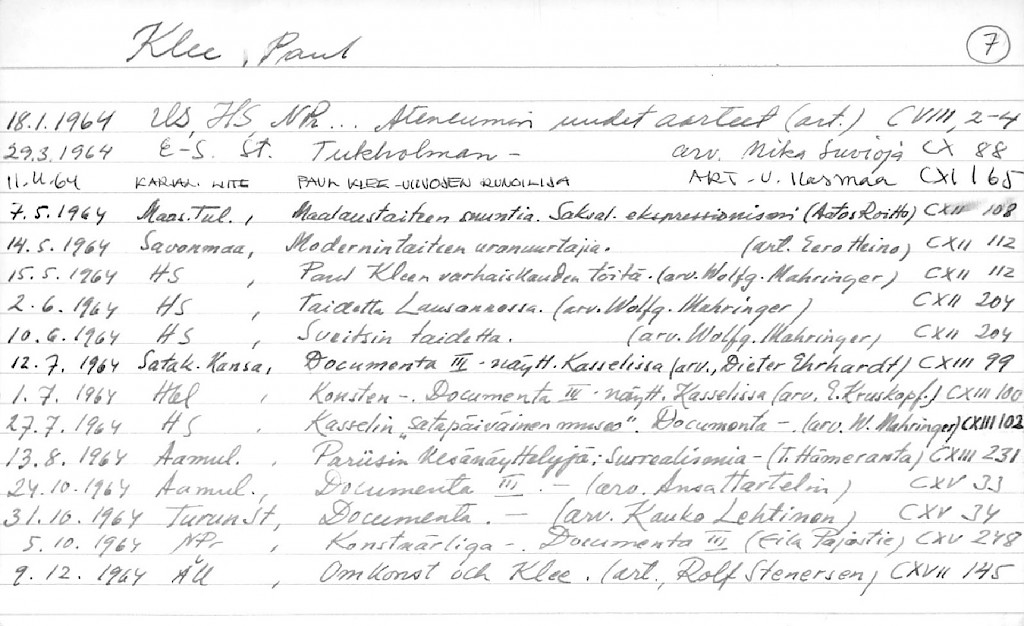 Klee, Paul 7
18.1.1964 US, HS, NPr... Ateneumin uudet aarteet (art.) CVIII, 2-4
29.3.1964 E-S. St. Tukholman - arv. Mika Suvioja CX 88
11.4.64 KARJAL. LIITE PAUL KLEE - VIIVOJEN RUNOILIJA ART - U. Ilasmaa CXI 165
7.5.1964 Maas.Tul., Maalaustaiteen suuntia. Saksal. ekspressionismi (Aatos Roitto) CXII 108
14.5.1964 Savonmaa, Modernin taiteen uranuurtajia. (art. Eero Heino) CXII 112
15.5.1964 HS , Paul Kleen varhaiskauden töitä. (arv. Wolfg. Mahringer) CXII 112
2.6.1964 HS , Taidetta Lausannessa. (arv. Wolfg. Mahringer) CXII 204
10.6.1964 HS , Sveitsin taidetta. (arv. Wolfg. Mahringer) CXII 204
12.7.1964 Satak. Kansa, Documenta III - näytt. Kasselissa (arv., Dieter Ehrhardt) CXIII 99
1.7.1964 Hbl , Konsten -. Documenta III - näytt. Kasselissa (arv. E. Kruskopf.) CXIII 100
27.7.1964 HS , Kasselin "satapäiväinen museo". Documenta -. (arv. W. Mahringer) CXIII 102
13.8.1964 Aamul. , Pariisin kesänäyttelyjä; Surrealismia - (T. Hämeranta) CXIII 231
24.10.1964 Aamul., Documenta III. - (arv. Ansa Hartelin) CXV 33
31.10.1964 Turun St, Documenta. - (arv. Kauko Lehtinen) CXV 34
5.10.1964 NPr , Konstnärliga -. Documenta III (Eila Pajastie) CXV 248
9.12.1964 ÅU , Om konst och Klee. (art., Rolf Stenersen) CXVII 145